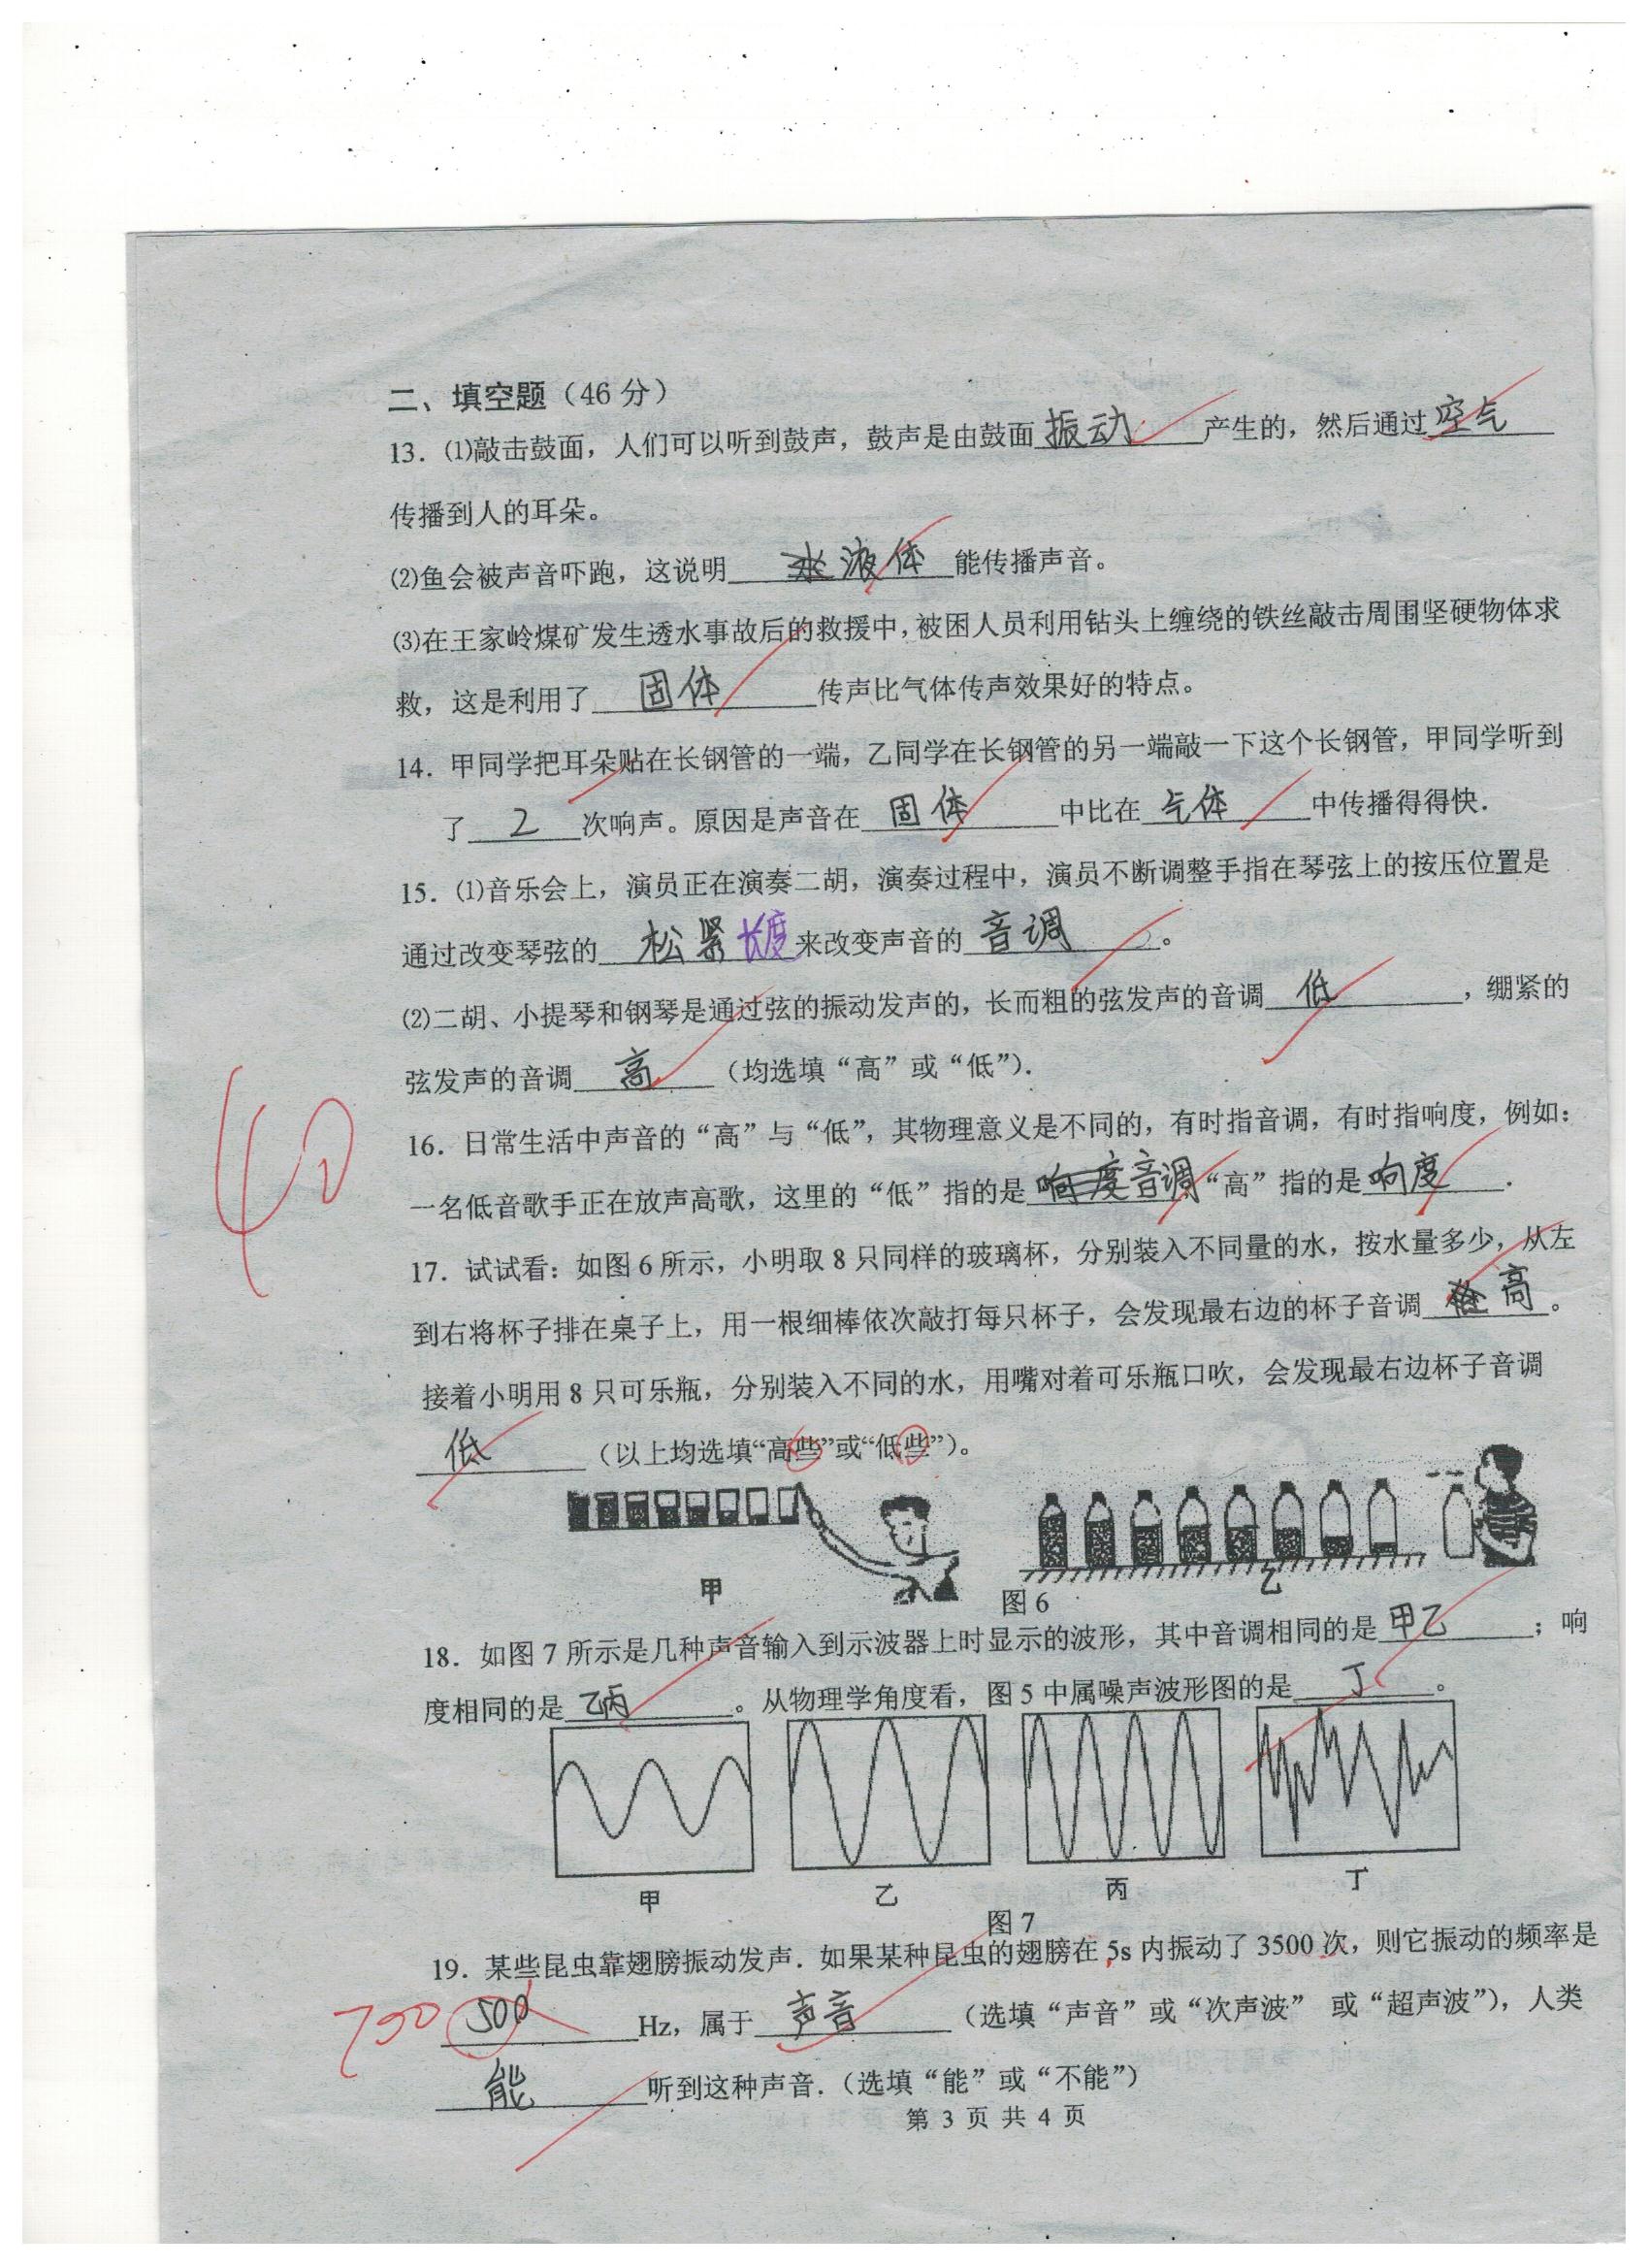 二、填空题（46 分）
13．⑴敲击鼓面，人们可以听到鼓声，鼓声是由鼓面振动产生的，然后通过空气
传播到人的耳朵。
⑵鱼会被声音吓跑，这说明水液体能传播声音。
⑶在王家岭煤矿发生透水事故后的救援中，被困人员利用钻头上缠绕的铁丝敲击周围坚硬物体求
救，这是利用了固体传声比气体传声效果好的特点。
14．甲同学把耳朵贴在长钢管的一端，乙同学在长钢管的另一端敲一下这个长钢管，甲同学听到
了2次响声。原因是声音在固体中比在气体中传播得得快．
15．⑴音乐会上，演员正在演奏二胡，演奏过程中，演员不断调整手指在琴弦上的按压位置是
通过改变琴弦的松紧长度来改变声音的音调。
⑵二胡、小提琴和钢琴是通过弦的振动发声的，长而粗的弦发声的音调低，绷紧的
弦发声的音调高（均选填“高”或“低”）．
40
16．日常生活中声音的“高”与“低”，其物理意义是不同的，有时指音调，有时指响度，例如：
一名低音歌手正在放声高歌，这里的“低”指的是响度音调“高”指的是响度．
17．试试看：如图 6 所示，小明取 8 只同样的玻璃杯，分别装入不同量的水，按水量多少，从左
到右将杯子排在桌子上，用一根细棒依次敲打每只杯子，会发现最右边的杯子音调高。
接着小明用 8 只可乐瓶，分别装入不同的水，用嘴对着可乐瓶口吹，会发现最右边杯子音调
低（以上均选填“高些”或“低些”）。
甲
乙
图 6
18．如图 7 所示是几种声音输入到示波器上时显示的波形，其中音调相同的是甲乙；响
度相同的是乙丙。从物理学角度看，图 5 中属噪声波形图的是丁。
甲
乙
丙
丁
图 7
19．某些昆虫靠翅膀振动发声．如果某种昆虫的翅膀在 5s 内振动了 3500 次，则它振动的频率是
700 500Hz，属于声音（选填“声音”或“次声波” 或“超声波”），人类
能听到这种声音．（选填“能”或“不能”）
第 3 页 共 4 页